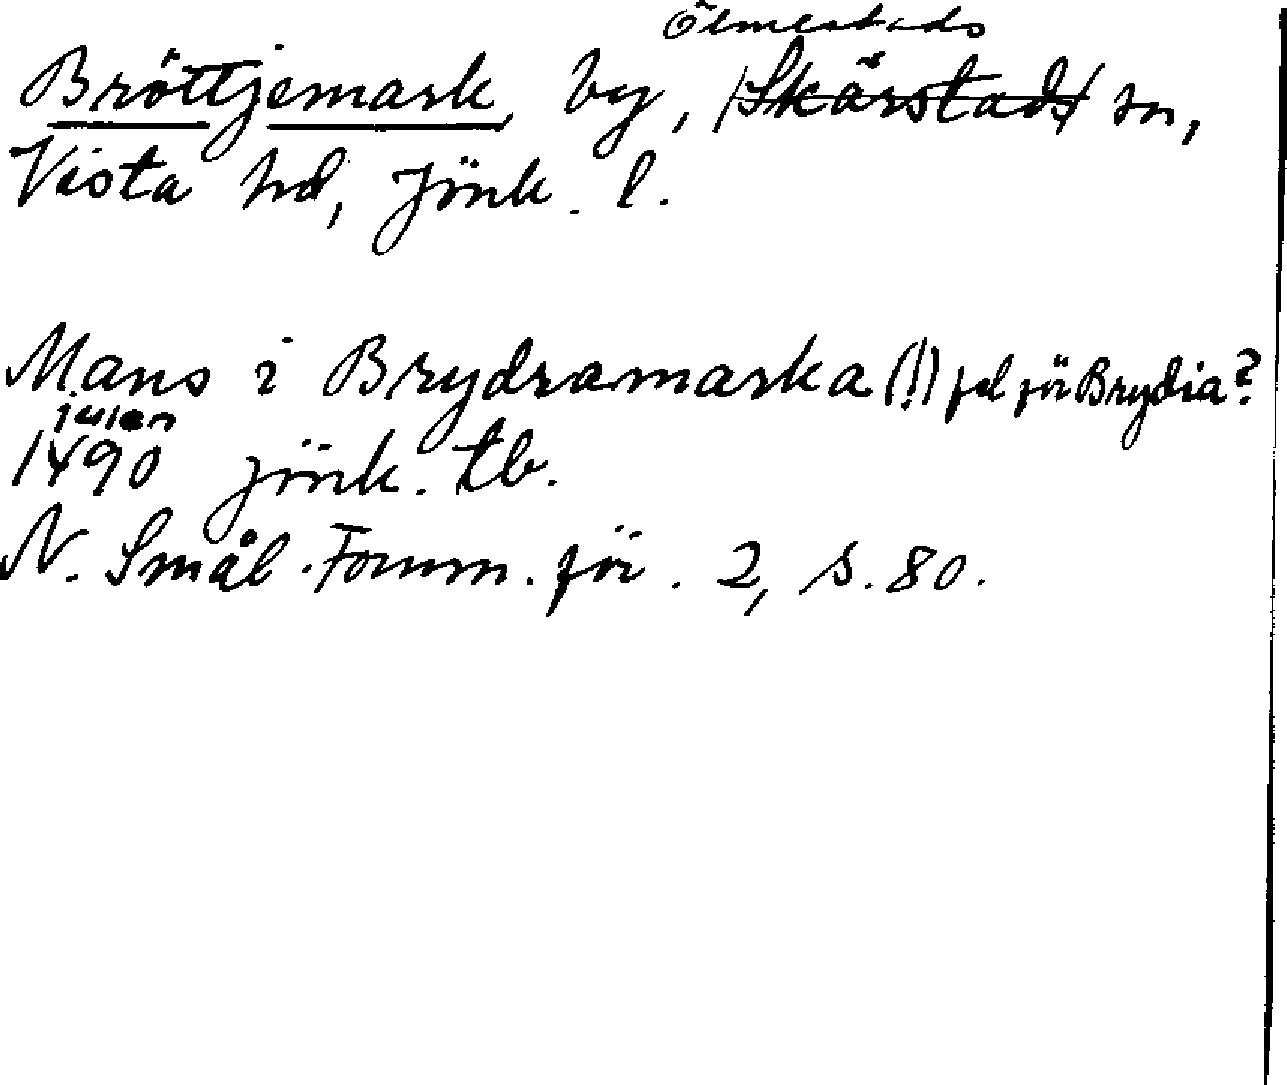 Ölmestads
Bröttjemark, by, /Skärstads/ sn,
Vista hd, Jönk. l.
Mans i Brydramarka (!) fel för Brydia?
julen
1490 Jönk. tb.
N. Smål. Fornm. för. 2, s. 80.